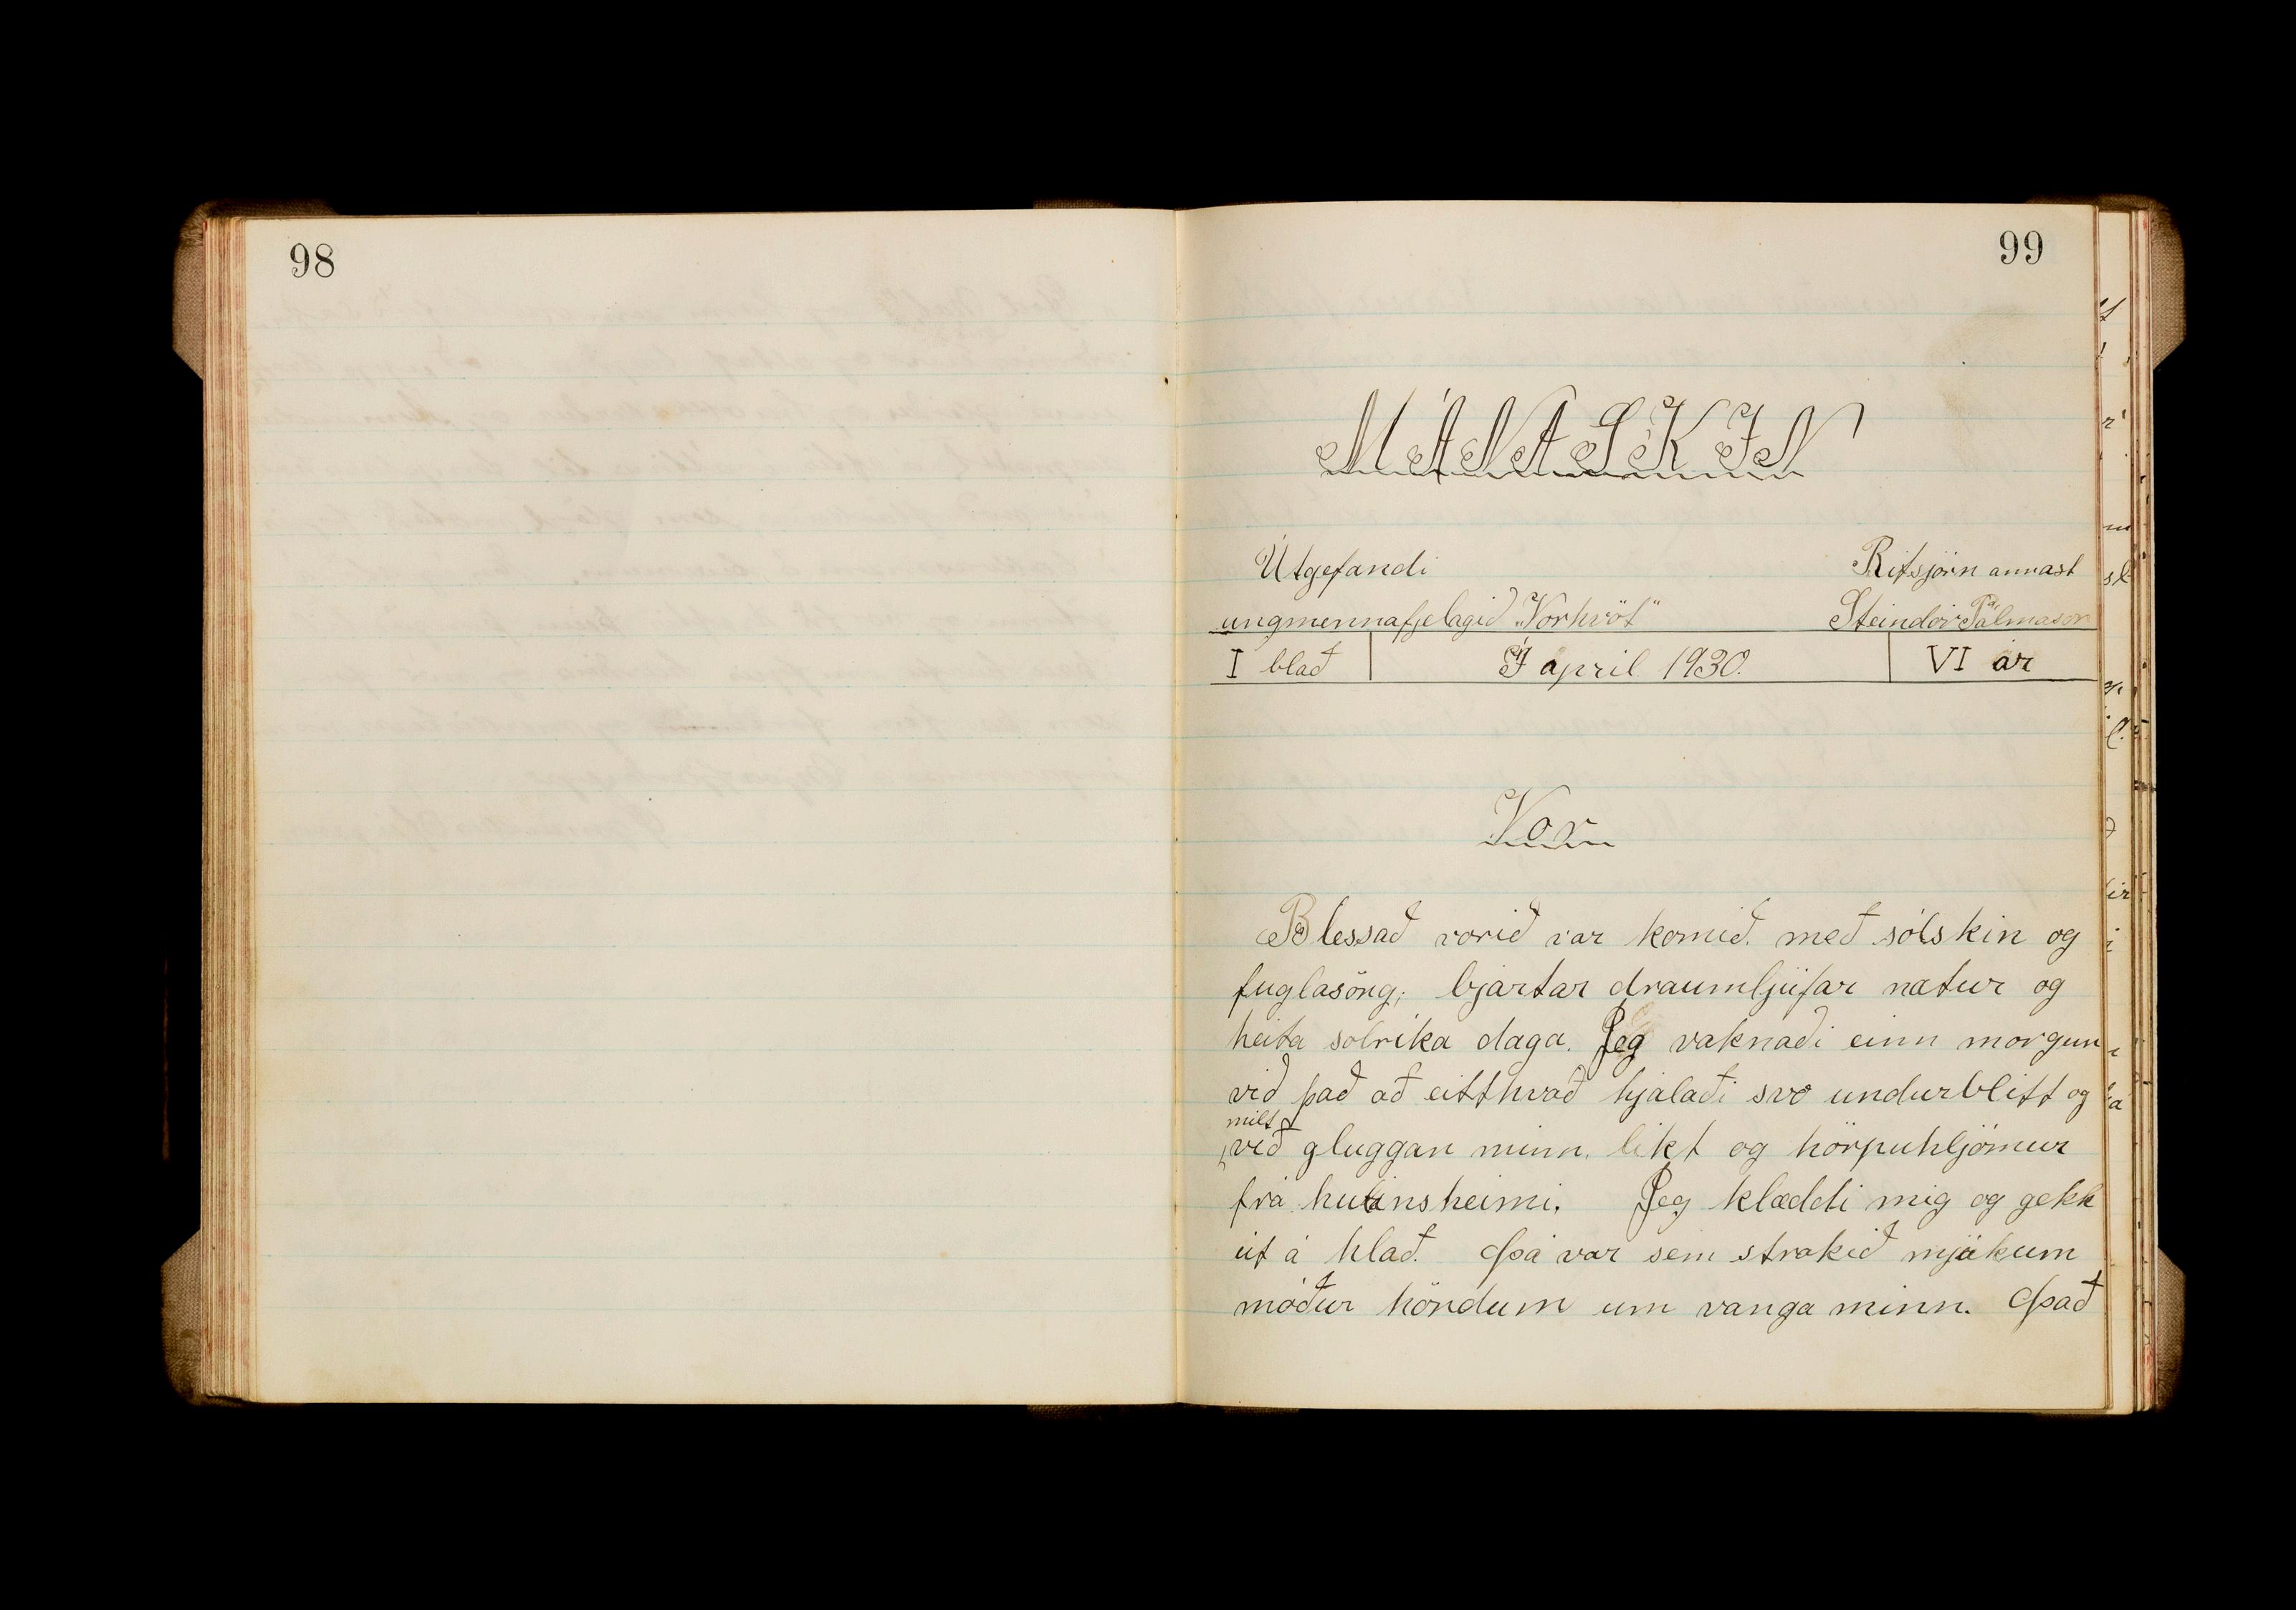 98
99
MÁNASKIN
Útgefandi
Ritsjórn annast
ungmennafjelagið „Vorhvöt“
Steindór Pálmason
I blað
Í apríl 1930.
VI ár
Vor
Blessað vorið var komið. með sólskin og
fuglasöng; bjartar draumljúfar nætur og
heita sólríka daga. Jeg vaknaði einn morgun
við það að eitthvað hjalaði svo undurblítt og
milt
við gluggan minn. líkt og hörpuhljómur
frá hulinsheimi. Jeg klæddi mig og gekk
út á hlað. Það var sem strokið mjúkum
móður höndum um vanga minn. Það